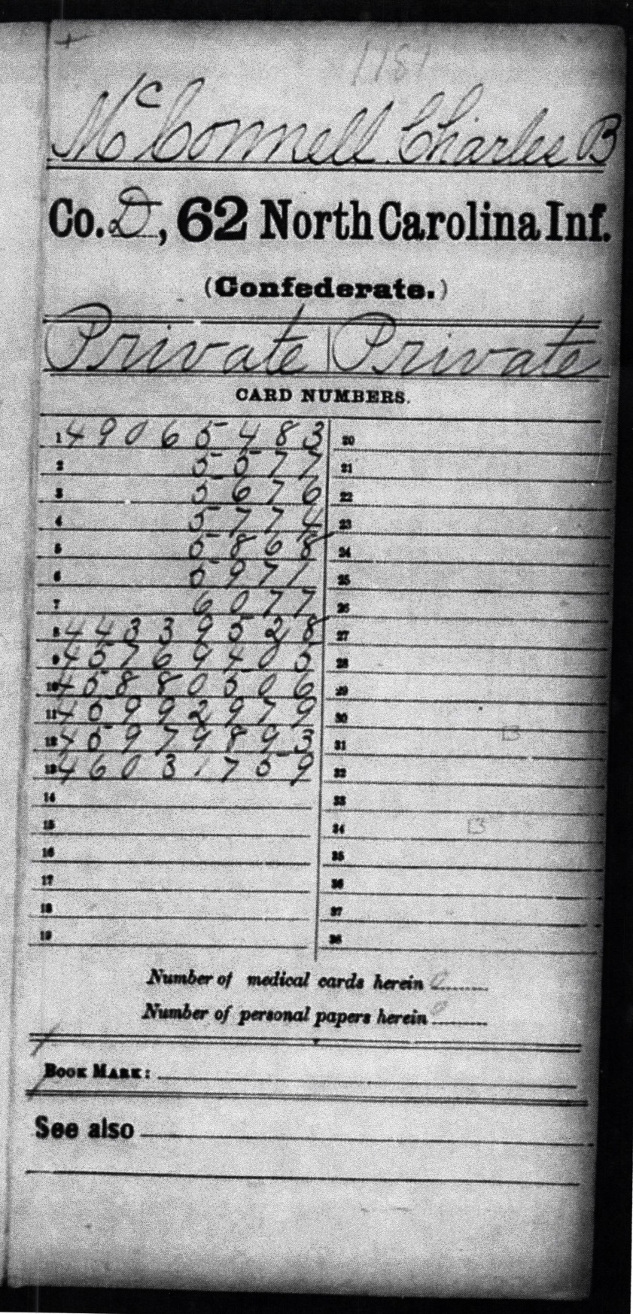 1181
McConnell Charles B
Co. D, 62 North Carolina Inf.
(Confederate.)
Private | Private
CARD NUMBERS.
1 49065483 20
2 5577 21
3 5676 22
4 5774 23
5 5868 24
6 5977 25
7 6077 26
8 44339528 27
9 45769405 28
10 45880506 29
11 45992979 30
12 45979893 31
13 46031759 32
14 33
15 34
16 35
17 36
18 37
19 38
Number of medical cards herein 0
Number of personal papers herein 0
BOOK MARK:
See also